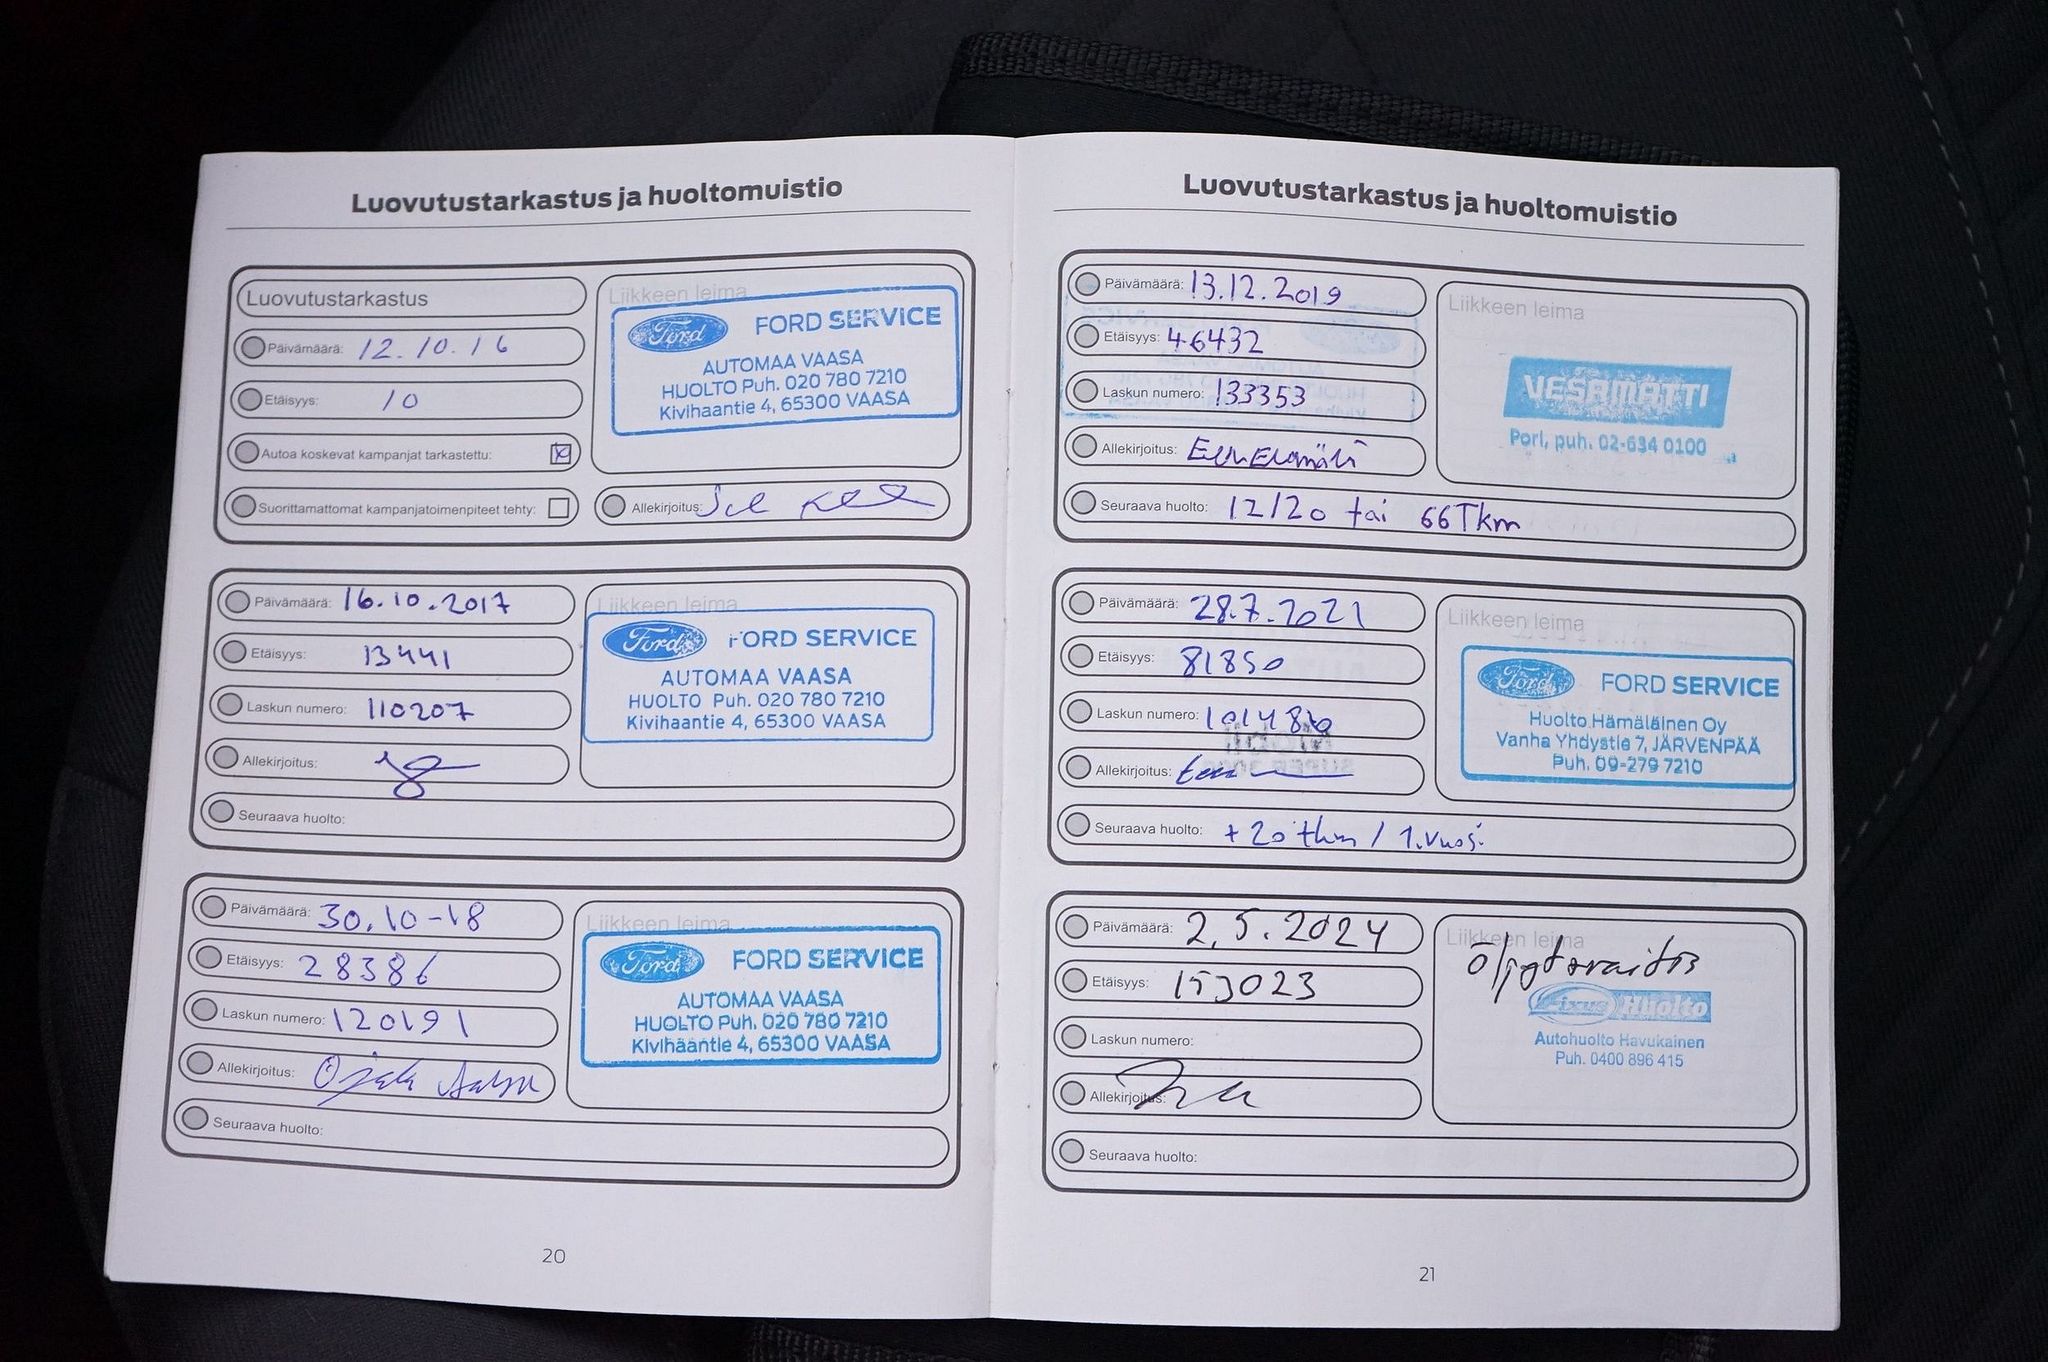 Luovutustarkastus ja huoltomuistio
Luovutustarkastus
Päivämäärä: 12.10.16
Etäisyys: 10
Autoa koskevat kampanjat tarkastettu:
Suorittamattomat kampanjatoimenpiteet tehty:
Liikkeen leima
Ford FORD SERVICE
AUTOMAA VAASA
HUOLTO Puh. 020 780 7210
Kivihaantie 4, 65300 VAASA
Allekirjoitus:
Päivämäärä: 16.10.2017
Etäisyys: 13441
Laskun numero: 110207
Allekirjoitus:
Seuraava huolto:
Liikkeen leima
Ford FORD SERVICE
AUTOMAA VAASA
HUOLTO Puh. 020 780 7210
Kivihaantie 4, 65300 VAASA
Päivämäärä: 30.10-18
Etäisyys: 28386
Laskun numero: 120191
Allekirjoitus:
Seuraava huolto:
Liikkeen leima
Ford FORD SERVICE
AUTOMAA VAASA
HUOLTO Puh. 020 780 7210
Kivihaantie 4, 65300 VAASA
20
Luovutustarkastus ja huoltomuistio
Päivämäärä: 13.12.2019
Etäisyys: 46432
Laskun numero: 133353
Allekirjoitus:
Seuraava huolto: 12/20 tai 66Tkm
Liikkeen leima
VESAMATTI
Pori, puh. 02-634 0100
Päivämäärä: 28.7.2021
Etäisyys: 81850
Laskun numero:
Allekirjoitus:
Seuraava huolto: +20 tkm / 1.vuosi
Liikkeen leima
Ford FORD SERVICE
Huolto Hämäläinen Oy
Vanha Yhdystie 7, JÄRVENPÄÄ
Puh. 09-279 7210
Päivämäärä: 2.5.2024
Etäisyys: 153023
Laskun numero:
Allekirjoitus:
Seuraava huolto:
Liikkeen leima
Fixus Huolto
Autohuolto Havukainen
Puh. 0400 896 415
21